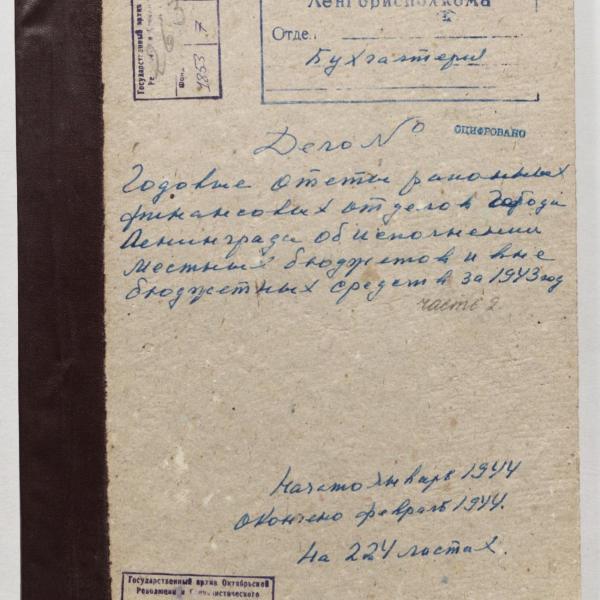 Государственный архив
Фон.
1853
7
Ленгорисполкома
Отде.
Бухгалтерия
Дело №
ОЦИФРОВАНО
Годовые отчеты районных
финансовых отделов города
Ленинграда об исполнении
местных бюджетов и вне
бюджетных средств за 1943 год
часть 2
Начато январь 1944
Окончено февраль 1944.
На 224 листах.
Государственный архив Октябрьской
Революции и Социалистического